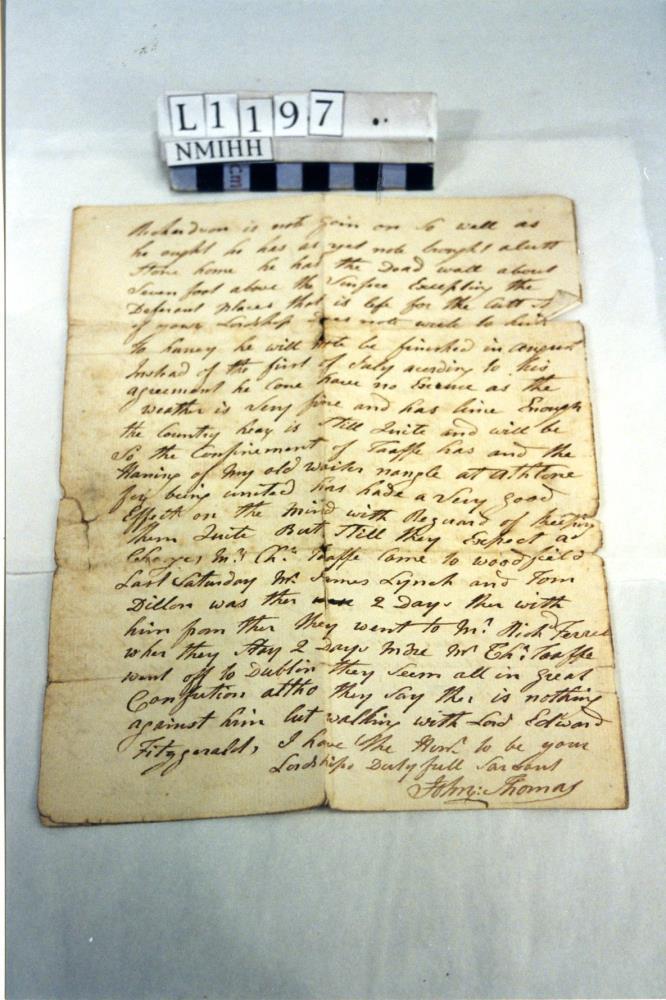 L1197
NMIHH
cm
Richardson is not goin on so well as
he ought he has as yet not brought a Cutt
Stone home he has the Dead wall about
Seven foot above the Surface Excepting the
Deferant places that is left for the Cutt S
if your Lordship does not write to him
to hurrey he will not be finished in August
Instead of the first of July acording to his
agreement he Cone have no Excuse as the
weather is very fine and has lime Enough
the Country heay is still Quite and will be
So the Confinement of Taaffe has and the
Haning of My old nangle at Athlone
for being united has hade a very good
Effect on the Mind with Reguard of keeping
them Quite But still they Expect a
Mr Chs Taaffe Came to woodfield
Last Saturday Mr James Lynch and Tom
Dillon was ther 2 Days ther with
him from ther they went to Mr Richd Ferrall
wher they stay 2 Days more Mr Chs Taaffe
went off to Dublin they Seem all in great
Confution altho they Say ther is nothing
against him but walking with Lord Edward
Fitzgerald, I have the Honr to be your
Lordships Dutyfull Sarvant
John: Thomas